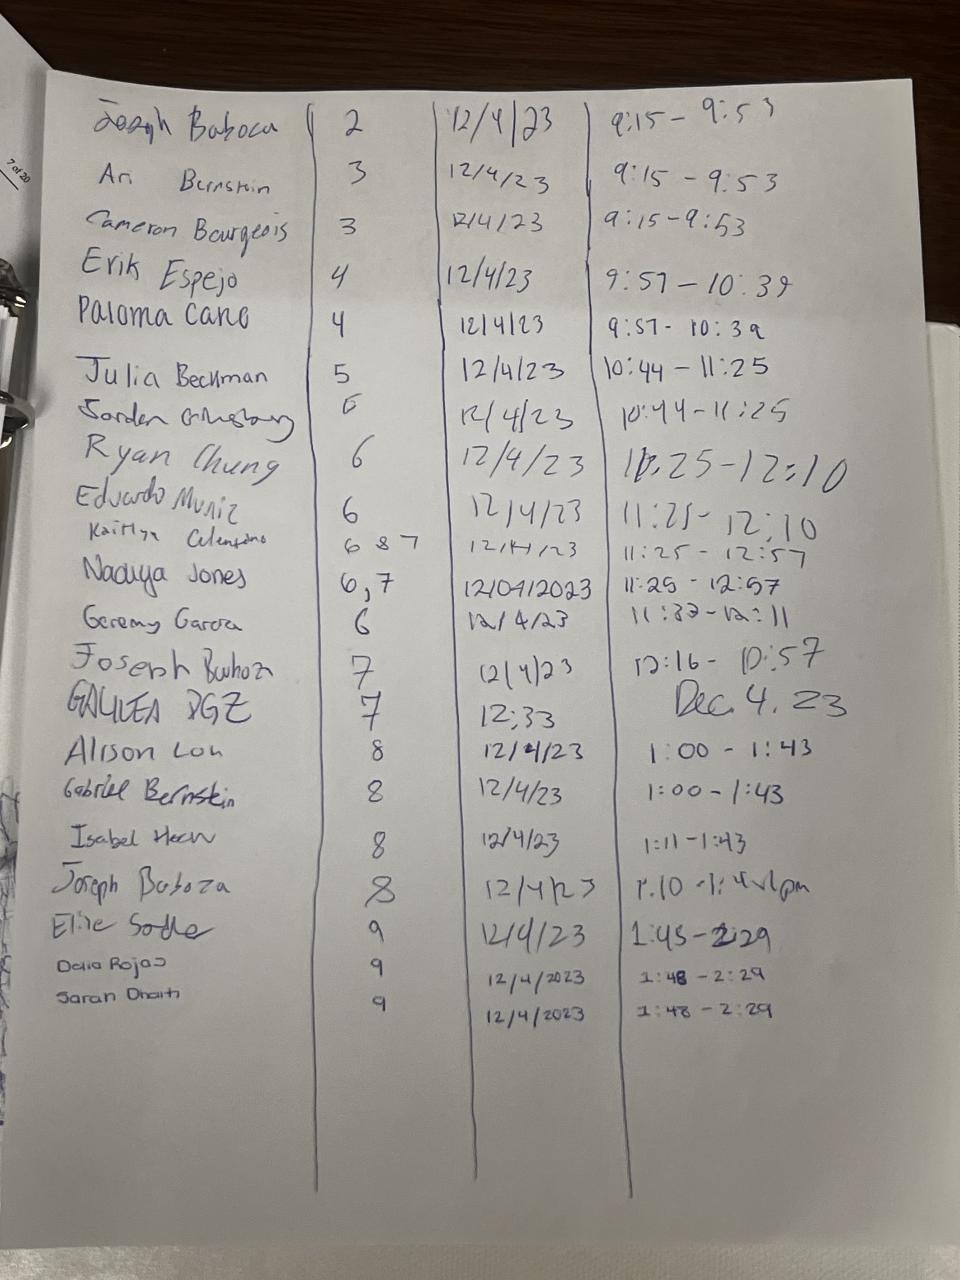 7 of 20
Joseph Baboca 2 12/4/23 9:15 - 9:53
Ari Bernstein 3 12/4/23 9:15 - 9:53
Cameron Bourgeois 3 12/4/23 9:15-9:53
Erik Espejo 4 12/4/23 9:57 - 10:39
Paloma Cano 4 12/4/23 9:57- 10:39
Julia Beckman 5 12/4/23 10:44 - 11:25
5 12/4/23 10:44-11:25
Ryan Chung 6 12/4/23 11:25-12:10
Eduardo Muniz 6 12/4/23 11:25- 12:10
Kaitlyn 6 & 7 12/4/23 11:25 - 12:57
Nadiya Jones 6,7 12/04/2023 11:25 - 12:57
Geremy Garcia 6 12/4/23 12:11
Joseph 7 12/4/23 12:16 -
GALILEA DGZ 7 12:33 Dec. 4. 23
Alison Lou 8 12/4/23 1:00 - 1:43
Gabriel Bernstein 8 12/4/23 1:00 - 1:43
Isabel 8 12/4/23 1:11-1:43
Joseph Baboza 8 12/4/23
9 12/4/23 1:45-2:29
Dalia Rojas 9 12/4/2023 1:48 - 2:29
Sarah 9 12/4/2023 1:48 - 2:29